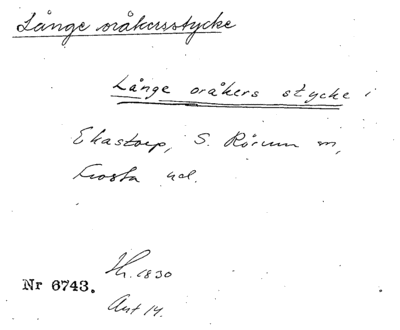 Långe oråkersstycke
Långe oråkers stycke i
Ekastorp, S. Rörum sn,
Frosta hd.
Nr 6743.
Ant 14.